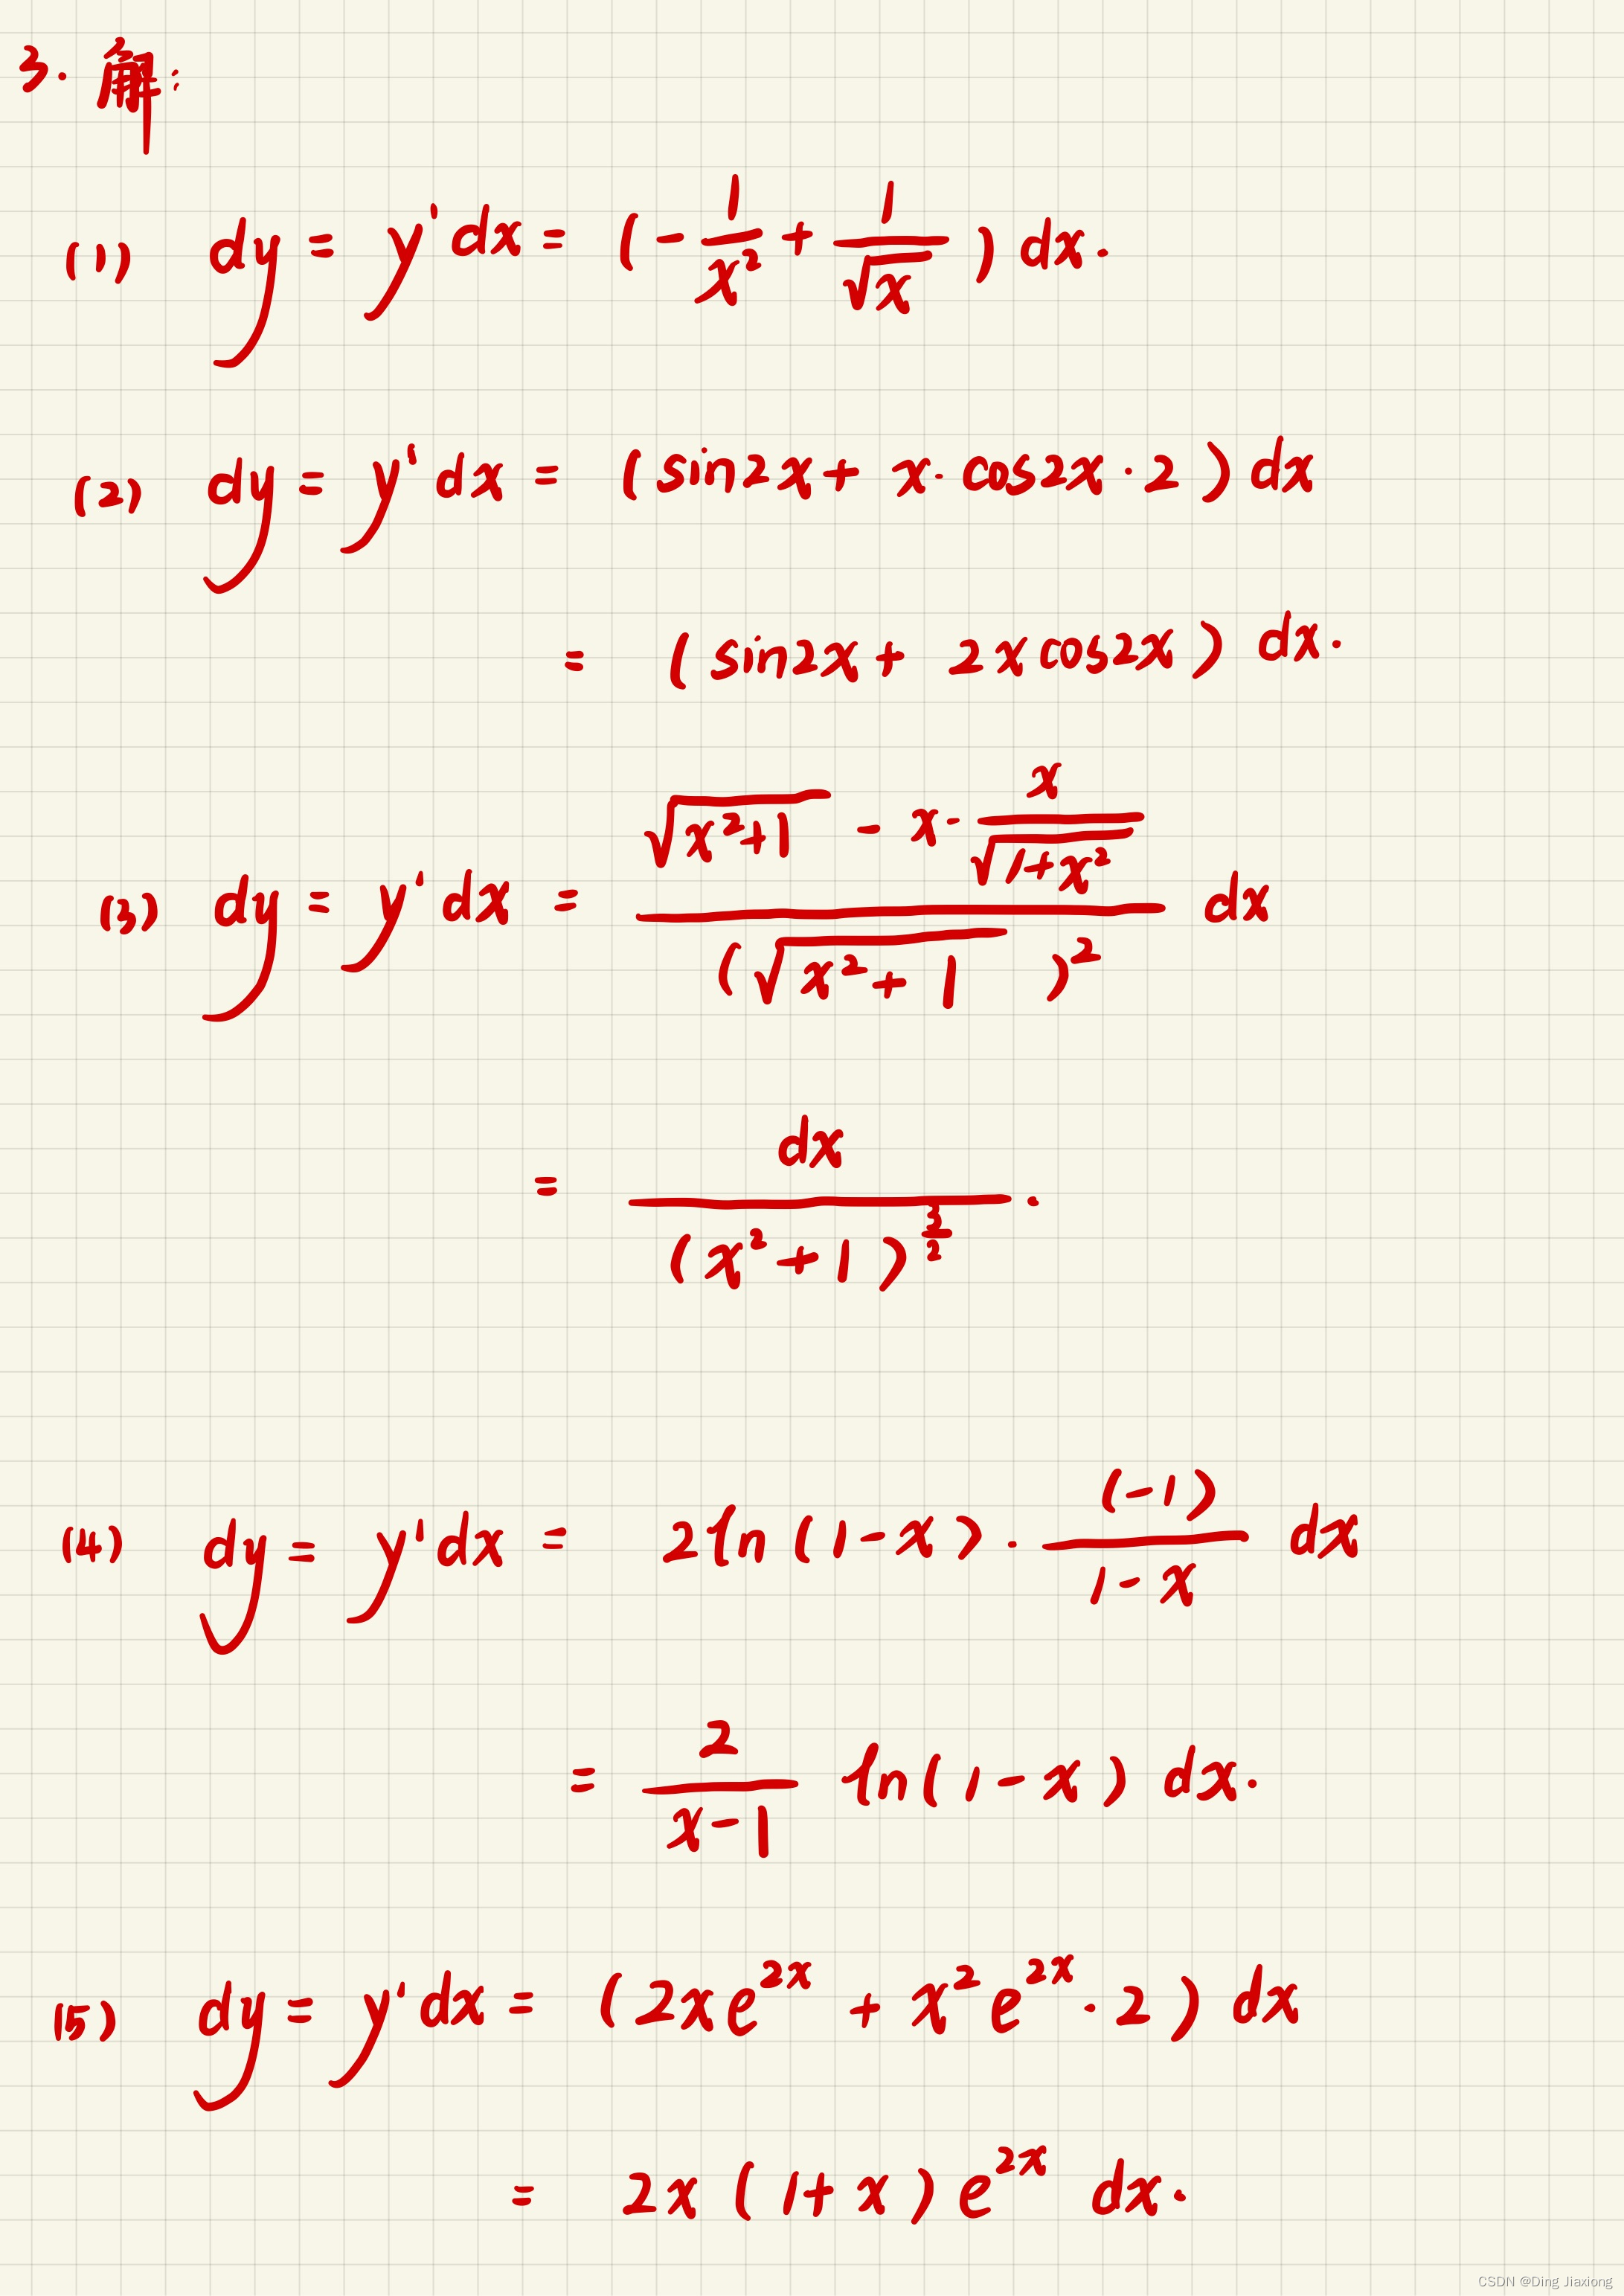 3. 解:
(1) dy = y'dx = (-1/x² + 1/√x) dx.
(2) dy = y'dx = (sin2x + x·cos2x·2) dx
= (sin2x + 2xcos2x) dx.
(3) dy = y'dx = (√(x²+1) - x·x/√(1+x²))/(√(x²+1))² dx
= dx/(x²+1)^(3/2).
(4) dy = y'dx = 2ln(1-x)·(-1)/(1-x) dx
= 2/(x-1) ln(1-x) dx.
(5) dy = y'dx = (2xe^(2x) + x²e^(2x)·2) dx
= 2x(1+x)e^(2x) dx.
CSDN @Ding Jiaxiong